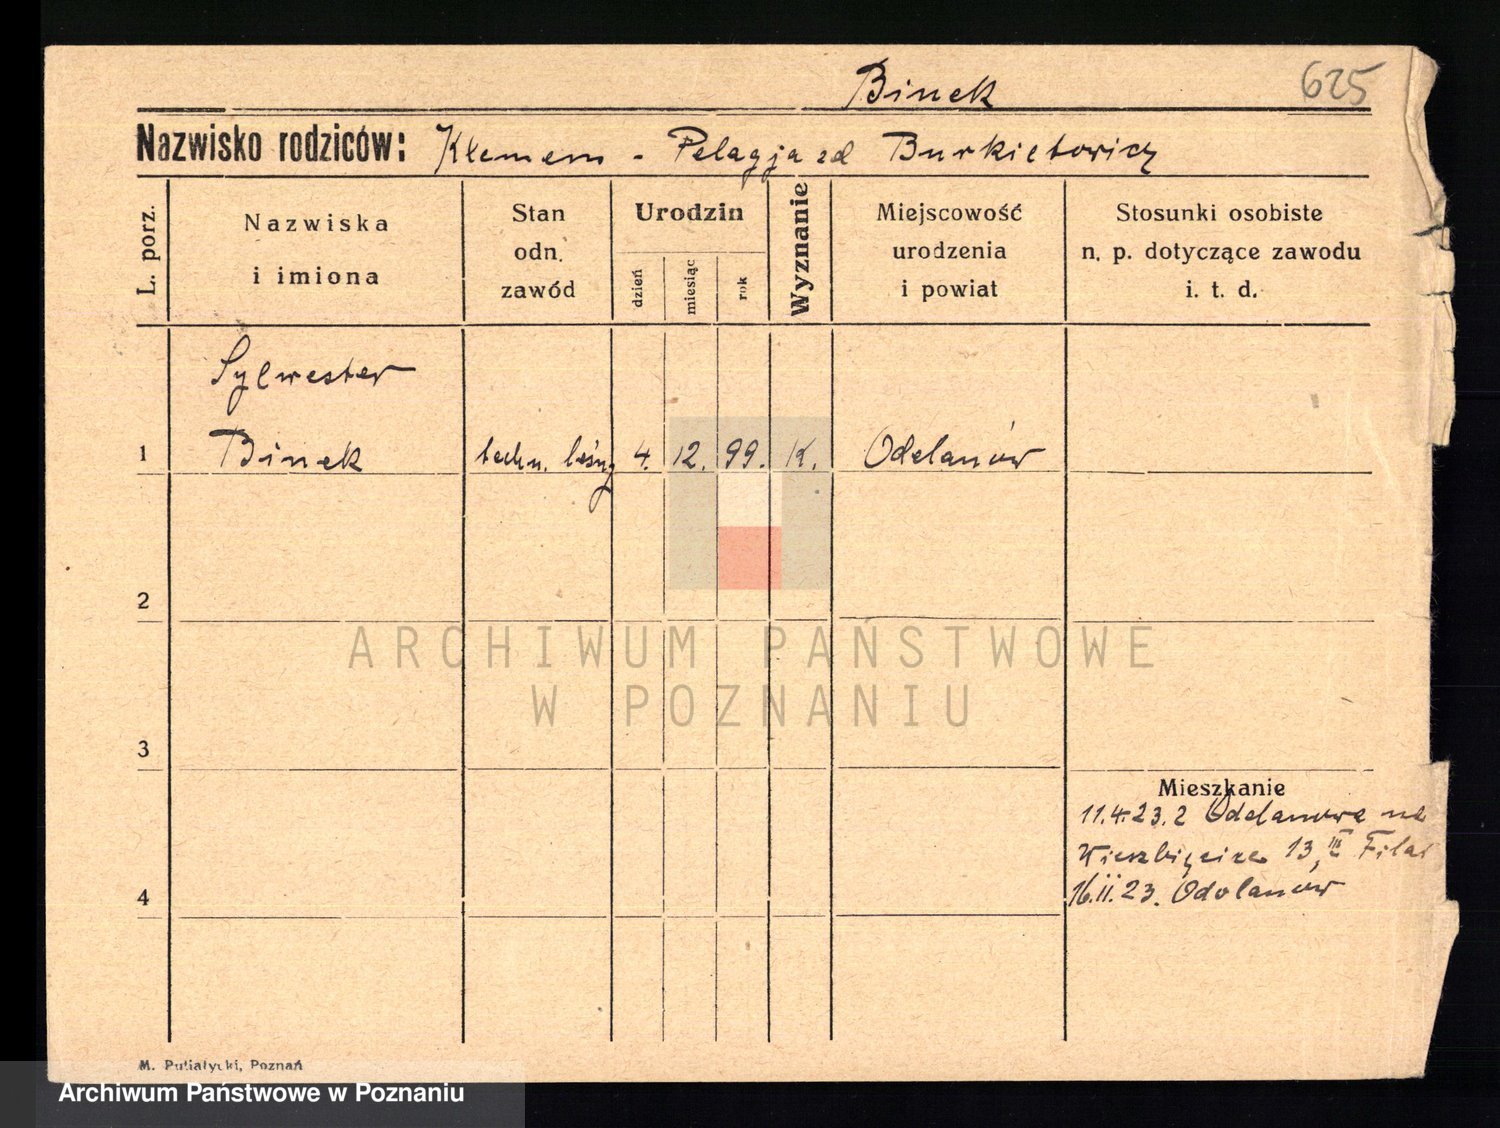 Binek 625
Nazwisko rodziców: Klemens - Pelagja zd Burkietowicz
L. porz.
Nazwiska
i imiona
Stan
odn.
zawód
Urodzin
dzień
miesiąc
rok
Wyznanie
Miejscowość
urodzenia
i powiat
Stosunki osobiste
n. p. dotyczące zawodu
i. t. d.
Sylwester
1 Binek techn. leśny 4. 12. 99. K. Odolanów
2
ARCHIWUM PAŃSTWOWE
W POZNANIU
3
Mieszkanie
11.4.23. z Odolanowa na
13, III
4
16.11.23. Odolanów
M. Putiatycki, Poznań
Archiwum Państwowe w Poznaniu